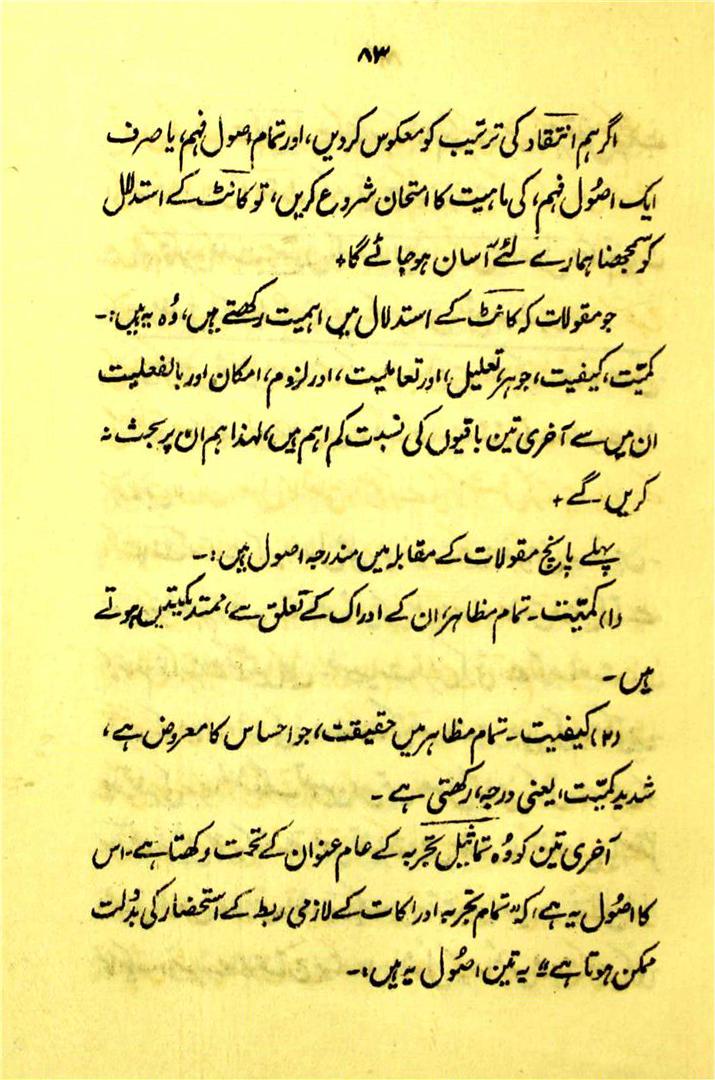 ۸۳
اگر ہم انتقاد کی ترتیب کو معکوس کردیں، اور تمام اصول فہم، یا صرف
ایک اصُول فہم، کی ماہیت کا امتحان شروع کریں، تو کانٹ کے استدلال
کو سمجھنا ہمارے لئے آسان ہوجائے گا+
جو مقولات کہ کانٹ کے استدلال میں اہمیت رکھتے ہیں، وُہ یہ ہیں:۔
کمیّت، کیفیت، جوہر، تعلیل، اور تعاملیت، اور لزوم، امکان اور بالفعلیت
ان میں سے آخری تین باقیوں کی نسبت کم اہم ہیں، لہٰذا ہم ان پر بحث نہ
کریں گے+
پہلے پانچ مقولات کے مقابلہ میں مندرجہ اصول ہیں:۔
(۱) کمیّت۔ تمام مظاہر، ان کے ادراک کے تعلق سے، ممتد کمیّتیں ہوتے
ہیں۔
(۲) کیفیت۔ تمام مظاہر میں حقیقت، جو احساس کا معروض ہے،
شدید کمیّت، یعنی درجہ، رکھتی ہے۔
آخری تین کو وُہ تماثیل تجربہ کے عام عنوان کے تحت رکھتا ہے۔ اس
کا اصُول یہ ہے، کہ "تمام تجربہ ادراکات کے لازمی ربط کے استحضار کی بدُولت
ممکن ہوتا ہے" یہ تین اصُول یہ ہیں:۔